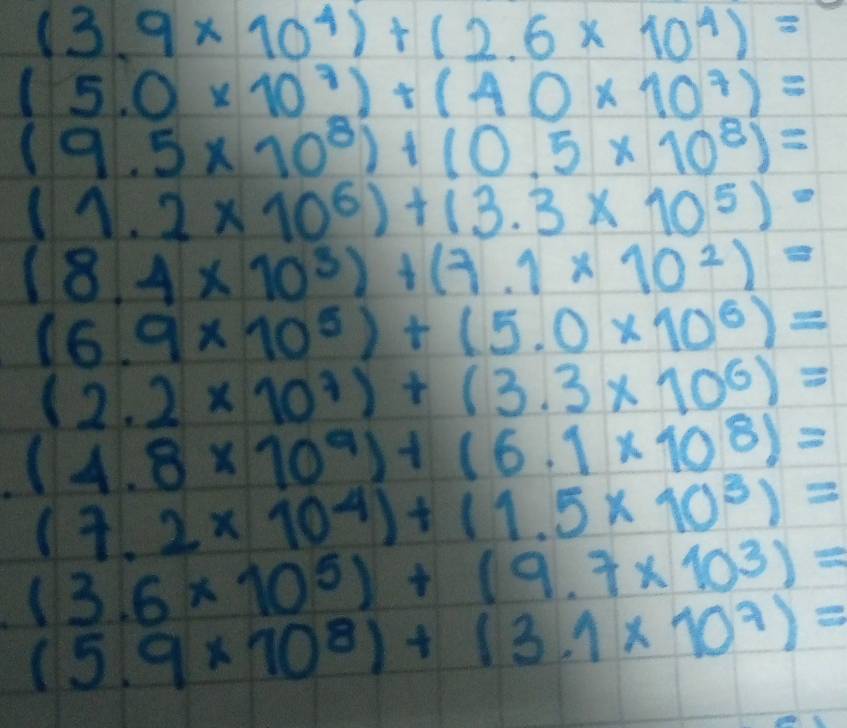 (3.9 × 10⁴) + (2.6 × 10⁴) =
(5.0 × 10⁷) + (4 0 × 10⁷) =
(9.5 × 10⁸) + (0.5 × 10⁸) =
(1.2 × 10⁶) + (3.3 × 10⁵) =
(8.4 × 10³) + (7.1 × 10²) =
(6.9 × 10⁵) + (5.0 × 10⁶) =
(2.2 × 10⁷) + (3.3 × 10⁶) =
(4.8 × 10⁹) + (6.1 × 10⁸) =
(7.2 × 10⁻⁴) + (1.5 × 10³) =
(3.6 × 10⁵) + (9.7 × 10³) =
(5.9 × 10⁸) + (3.1 × 10⁷) =